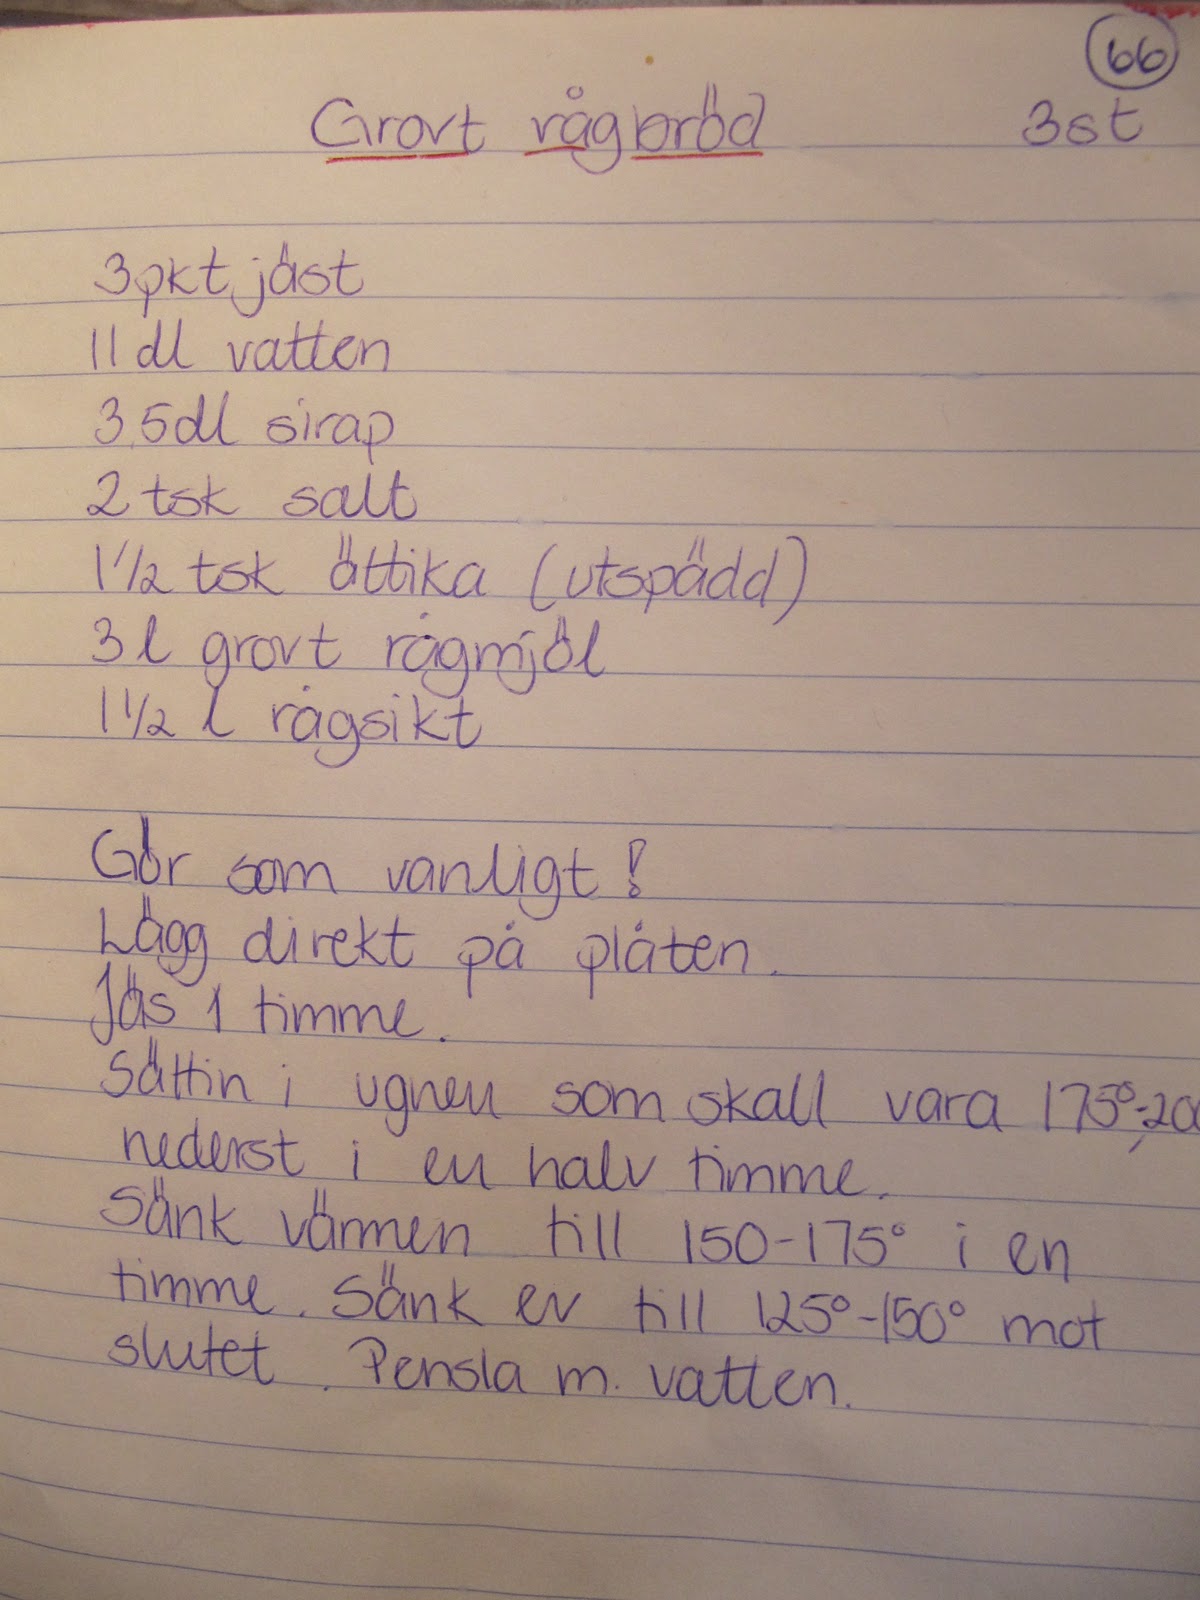 66
Grovt rågbröd 3st
3pkt jäst
11 dl vatten
3,5dl sirap
2 tsk salt
1 1/2 tsk ättika (utspädd)
3 l grovt rågmjöl
1 1/2 l rågsikt
Gör som vanligt!
Lägg direkt på plåten.
Jäs 1 timme.
Sättin i ugnen som skall vara 175°-20
nederst i en halv timme.
Sänk värmen till 150-175° i en
timme. Sänk ev till 125°-150° mot
slutet. Pensla m. vatten.